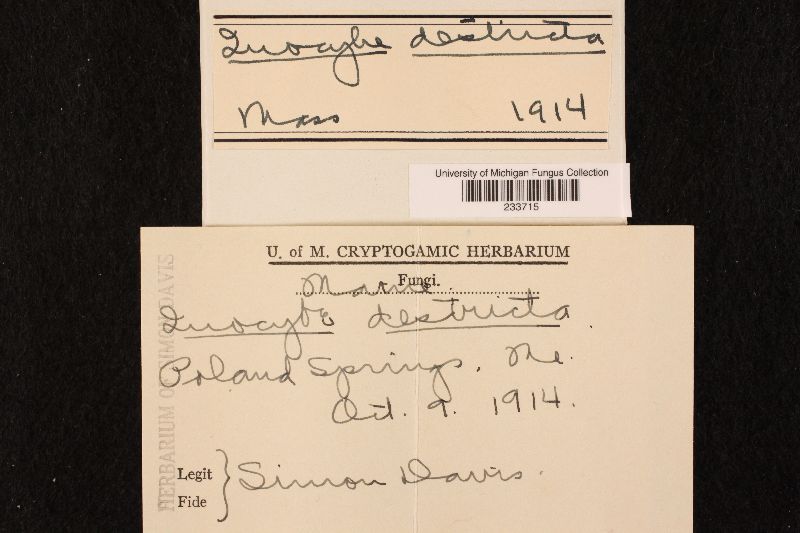 Inocybe destricta
Mass 1914
University of Michigan Fungus Collection
233715
U. of M. CRYPTOGAMIC HERBARIUM
Fungi.
Maine
Inocybe destricta.
Poland Springs, Me.
Oct. 9. 1914.
Legit
Fide
Simon Davis.
HERBARIUM OF SIMON DAVIS